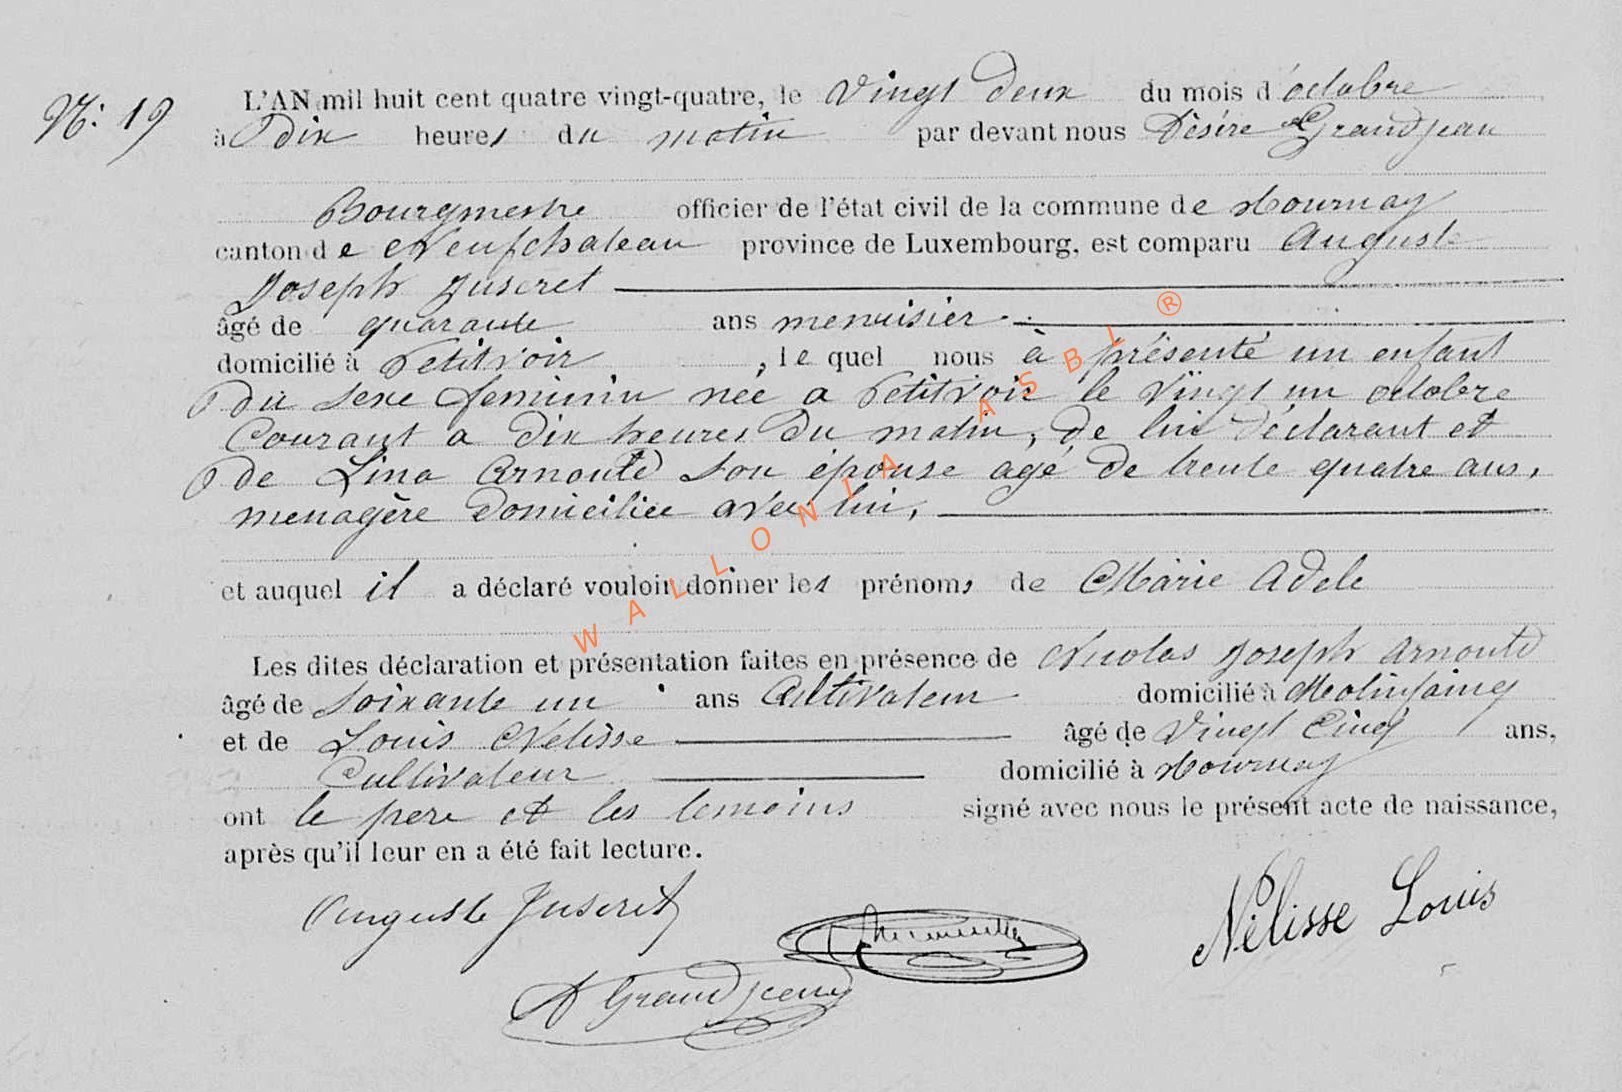 N: 19
L'AN mil huit cent quatre vingt-quatre, le Vingt deux du mois d'octobre
à Dix heures du matin par devant nous Désiré Grandjean
Bourgmestre officier de l'état civil de la commune de Tournay
canton de Neufchateau province de Luxembourg, est comparu Auguste
Joseph Juseret
âgé de quarante ans menuisier
domicilié à Petitvoir, le quel nous à présenté un enfant
Du sexe feminin née a Petitvoir le Vingt un octobre
Courant a Dix heures Du matin, de lui Déclarant et
De Lina Arnould son épouse agé De trente quatre ans,
menagère Domiciliée avec lui,
et auquel il a déclaré vouloir donner les prénoms de Marie Adele
Les dites déclaration et présentation faites en présence de Nicolas Joseph Arnould
âgé de Soixante un ans Cultivateur domicilié à Molinfaing
et de Louis Nélisse âgé de Vingt Cinq ans,
Cultivateur domicilié à Tournay
ont le pere et les temoins signé avec nous le présent acte de naissance,
après qu'il leur en a été fait lecture.
Auguste Juseret
Nélisse Louis
D Grandjean
WALLONIA ASBL ®